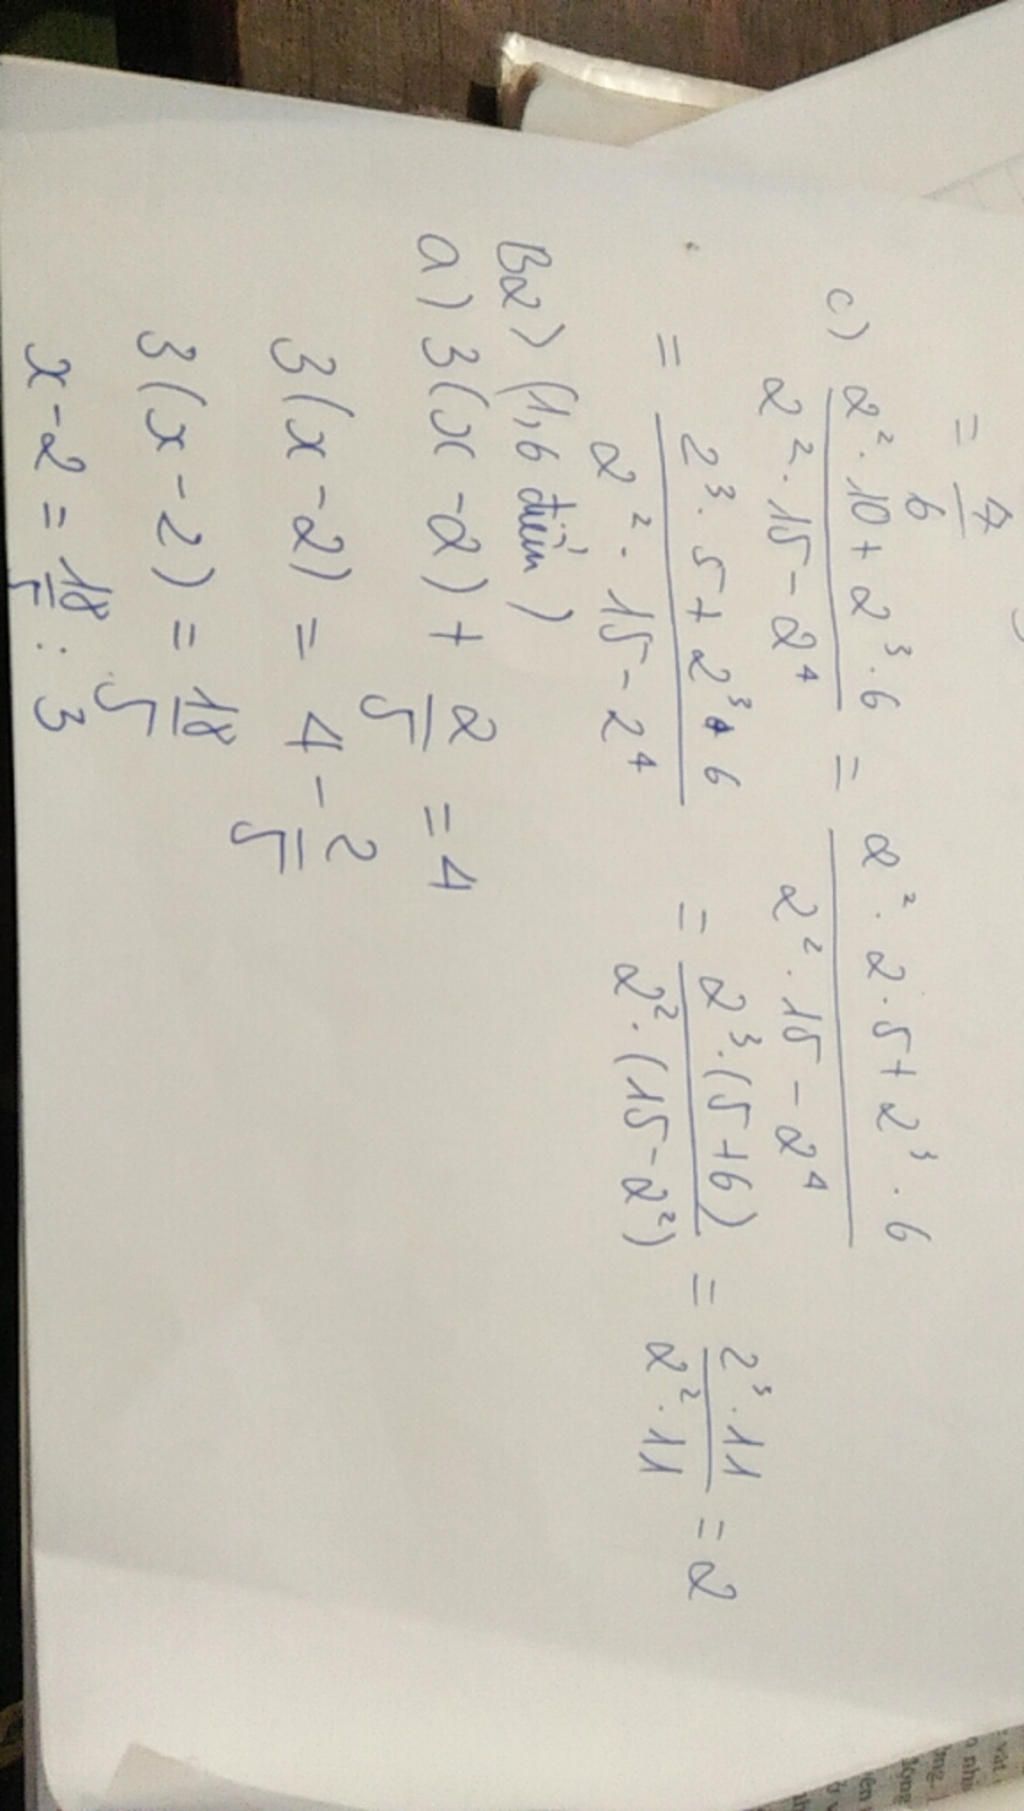 = 7/6
c) (2² . 10 + 2³ . 6)/(2² . 15 - 2⁴) = (2² . 2 . 5 + 2³ . 6)/(2² . 15 - 2⁴)
= (2³ . 5 + 2³ . 6)/(2² . 15 - 2⁴) = (2³ . (5 + 6))/(2² . (15 - 2²)) = (2³ . 11)/(2² . 11) = 2
B2) (1,6 điểm)
a) 3(x - 2) + 2/5 = 4
3(x - 2) = 4 - 2/5
3(x - 2) = 18/5
x - 2 = 18/5 : 3